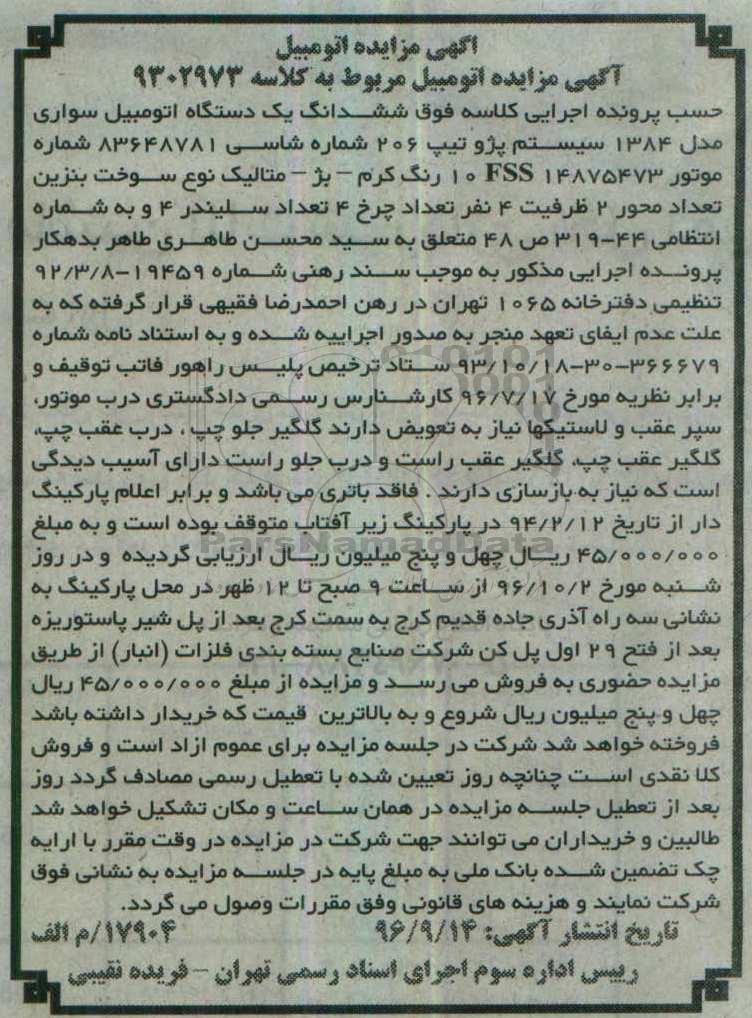 آگهی مزایده اتومبیل
آگهی مزایده اتومبیل مربوط به کلاسه ۹۳۰۲۹۷۳
حسب پرونده اجرایی کلاسه فوق ششدانگ یک دستگاه اتومبیل سواری
مدل ۱۳۸۴ سیستم پژو تیپ ۲۰۶ شماره شاسی ۸۳۶۴۸۷۸۱ شماره
موتور ۱۴۸۷۵۴۷۳ FSS ۱۰ رنگ کرم – بژ – متالیک نوع سوخت بنزین
تعداد محور ۲ ظرفیت ۴ نفر تعداد چرخ ۴ تعداد سلیندر ۴ و به شماره
انتظامی ۴۴-۳۱۹ ص ۴۸ متعلق به سید محسن طاهری طاهر بدهکار
پرونده اجرایی مذکور به موجب سند رهنی شماره ۱۹۴۵۹-۹۲/۳/۸
تنظیمی دفترخانه ۱۰۶۵ تهران در رهن احمدرضا فقیهی قرار گرفته که به
علت عدم ایفای تعهد منجر به صدور اجراییه شده و به استناد نامه شماره
۳۶۶۶۷۹-۳۰-۹۳/۱۰/۱۸ ستاد ترخیص پلیس راهور فاتب توقیف و
برابر نظریه مورخ ۹۶/۷/۱۷ کارشنارس رسمی دادگستری درب موتور،
سپر عقب و لاستیکها نیاز به تعویض دارند گلگیر جلو چپ ، درب عقب چپ،
گلگیر عقب چپ، گلگیر عقب راست و درب جلو راست دارای آسیب دیدگی
است که نیاز به بازسازی دارند . فاقد باتری می باشد و برابر اعلام پارکینگ
دار از تاریخ ۹۴/۲/۱۲ در پارکینگ زیر آفتاب متوقف بوده است و به مبلغ
۴۵/۰۰۰/۰۰۰ ریال چهل و پنج میلیون ریال ارزیابی گردیده و در روز
شنبه مورخ ۹۶/۱۰/۲ از ساعت ۹ صبح تا ۱۲ ظهر در محل پارکینگ به
نشانی سه راه آذری جاده قدیم کرج به سمت کرج بعد از پل شیر پاستوریزه
بعد از فتح ۲۹ اول پل کن شرکت صنایع بسته بندی فلزات (انبار) از طریق
مزایده حضوری به فروش می رسد و مزایده از مبلغ ۴۵/۰۰۰/۰۰۰ ریال
چهل و پنج میلیون ریال شروع و به بالاترین قیمت که خریدار داشته باشد
فروخته خواهد شد شرکت در جلسه مزایده برای عموم ازاد است و فروش
کلا نقدی است چنانچه روز تعیین شده با تعطیل رسمی مصادف گردد روز
بعد از تعطیل جلسه مزایده در همان ساعت و مکان تشکیل خواهد شد
طالبین و خریداران می توانند جهت شرکت در مزایده در وقت مقرر با ارایه
چک تضمین شده بانک ملی به مبلغ پایه در جلسه مزایده به نشانی فوق
شرکت نمایند و هزینه های قانونی وفق مقررات وصول می گردد.
تاریخ انتشار آگهی: ۹۶/۹/۱۴ ۱۷۹۰۴/م الف
رییس اداره سوم اجرای اسناد رسمی تهران – فریده نقیبی
ParsNamadData